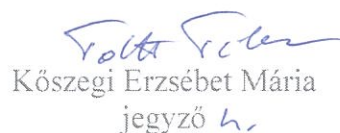 Kőszegi Erzsébet Mária
jegyző h.